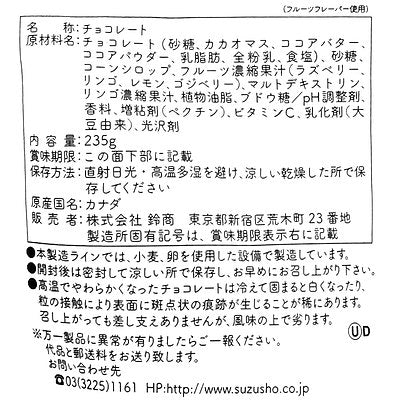 (フルーツフレーバー使用)
名　　称：チョコレート
原材料名：チョコレート（砂糖、カカオマス、ココアバター、
ココアパウダー、乳脂肪、全粉乳、食塩)、砂糖、
コーンシロップ、フルーツ濃縮果汁（ラズベリー、
リンゴ、レモン、ゴジベリー)、マルトデキストリン、
リンゴ濃縮果汁、植物油脂、ブドウ糖／pH調整剤、
香料、増粘剤（ペクチン)、ビタミンC、乳化剤（大
豆由来)、光沢剤
内 容 量：235g
賞味期限：この面下部に記載
保存方法：直射日光・高温多湿を避け、涼しい乾燥した所で保
存してください
原産国名：カナダ
販 売 者：株式会社 鈴商　東京都新宿区荒木町23番地
製造所固有記号は、賞味期限表示右に記載
●本製造ラインでは、小麦、卵を使用した設備で製造しています。
●開封後は密封して涼しい所で保存し、お早めにお召し上がり下さい。
●高温でやわらかくなったチョコレートは冷えて固まると白くなったり、
粒の接触により表面に斑点状の痕跡が生じることが稀にあります。
召し上がっても差し支えありませんが、風味の上で劣ります。
※万一製品に異常が有りましたらご一報ください。
代品と郵送料をお送り致します。
お問い合わせ先
☎03(3225)1161　HP:http://www.suzusho.co.jp
ⓊD